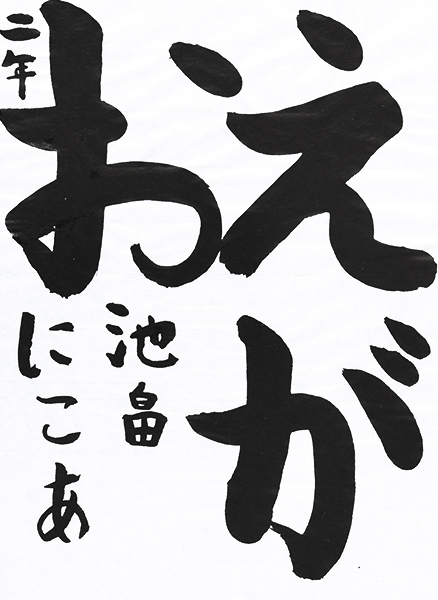 えが
お
二年
池畠
にこあ